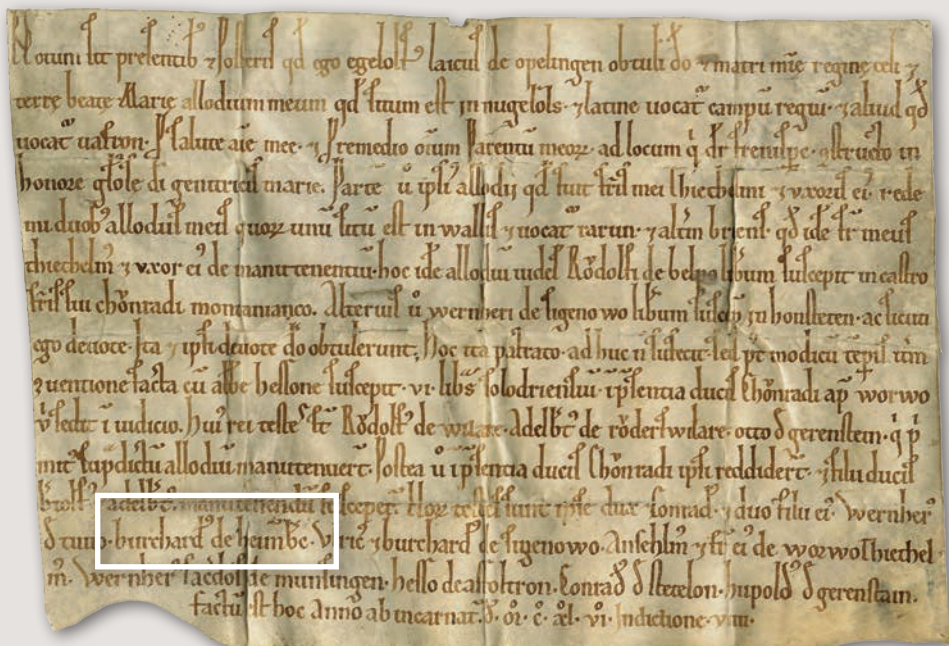 Notum sit presentib ⁊ posteris qd ego egelolf laicus de opelingen obtuli do ⁊ matri mie regine celi ⁊
terre beate Marie allodium meum qd situm est in nugerols ⁊ latine uocat campu regiu ⁊ aliud qd
uocat uafron. salute aie mee ⁊ remedio oium parentu meoꝝ ad locum q dr frenispe ostructo in
honore gliose di genitricis marie. Parte u ipsi allodii qd fuit fris mei thiechelmi ⁊ uxoris ei rede
mi duob allodiis meis quoꝝ unu situ est in wallis ⁊ uocat rarun ⁊ altm briens qd ide fr meus
thiechelm ⁊ uxor ei de manutenentiu hoc ide allodiu uidel Rodolfi de belpo libum suscepit in castro
fris sui chonradi montaniaco. Alterius u wernheri de sigenowo libum suscep in honsteten ac sicuti
ego deuote ita ⁊ ipsi deuote do obtulerunt. Hoc ita patrato ad huc n suffecit sed pt modicu tepis itm
ꝯuentione facta cu abbe hessone suscepit vi libs solodriensiu ipsentia ducis Chonradi ap worwo
u sedit i iudicio. Hui rei teste st Rodolf de wilare Adelbt de roderswilare otto d gerenstein q p
mit supdictu allodiu manutenuert. Postea u ipsentia ducis Chonradi ipsi reddidert ⁊ filii ducis
adelbt manutenendu susceper. Hoꝝ testes sunt ipse dux Conrad ⁊ duo filii ei Wernher
d tun burchard de heimbc. Vlric ⁊ burchard de sigenowo Anshelm ⁊ fr ei de worwo Thiechel
m. Wernher sacdos de munsingen hesso de affoltron. Conrad d stetelon hupold d gerenstain.
factu st hoc Anno ab incarnat d. oi. c. xl. vi. Indictione viiii.